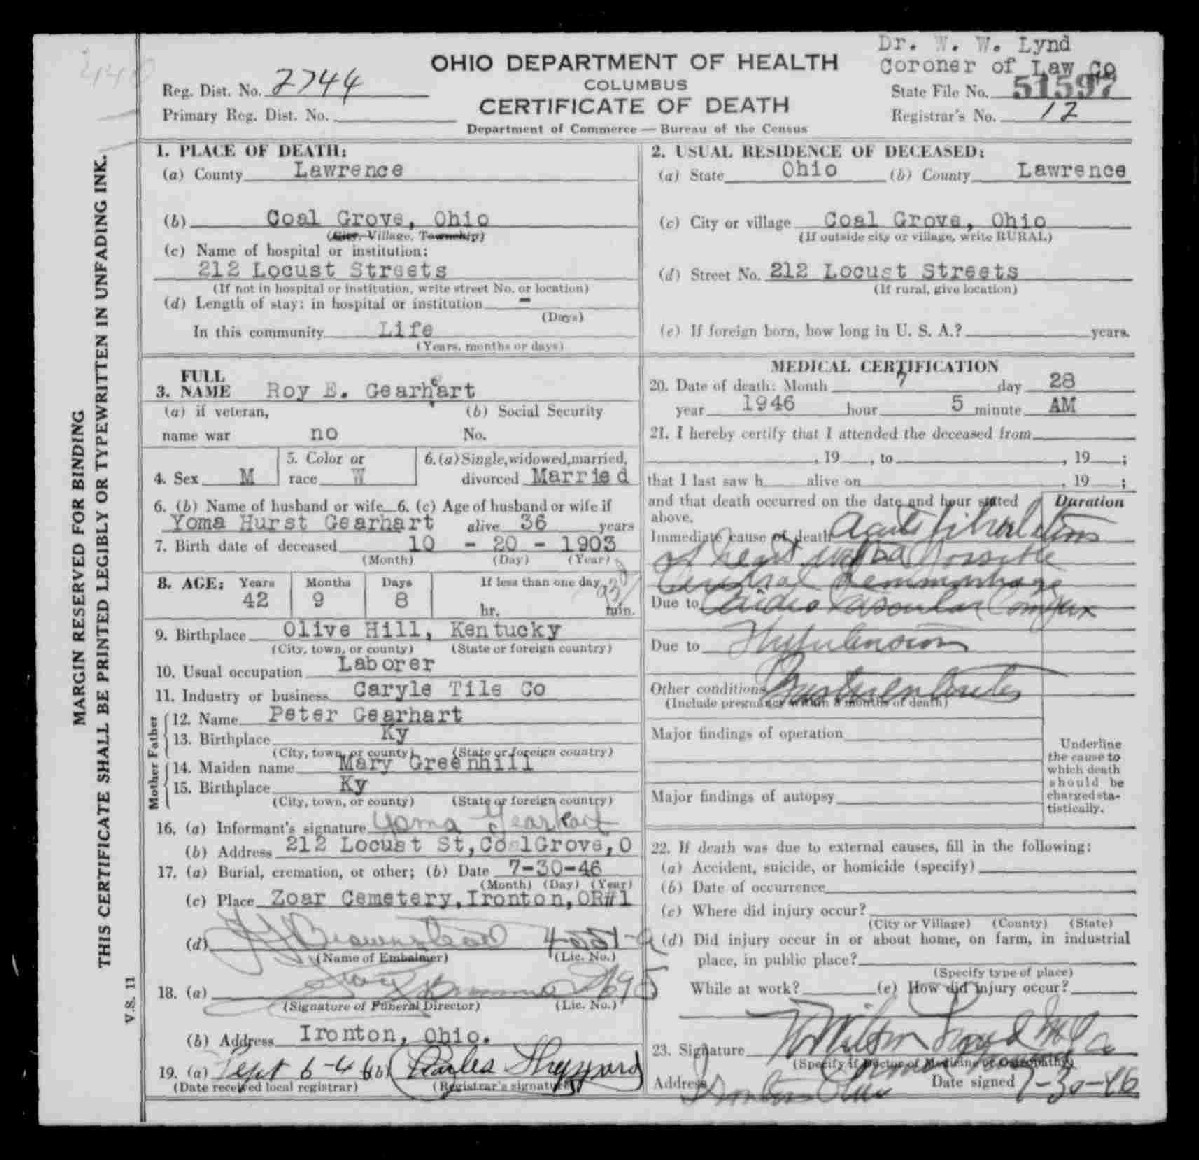 Dr. W. W. Lynd
Coroner of Law Co
OHIO DEPARTMENT OF HEALTH
COLUMBUS
CERTIFICATE OF DEATH
Department of Commerce — Bureau of the Census
Reg. Dist. No. 2744
Primary Reg. Dist. No.
State File No. 51597
Registrar's No. 12
MARGIN RESERVED FOR BINDING
THIS CERTIFICATE SHALL BE PRINTED LEGIBLY OR TYPEWRITTEN IN UNFADING INK.
V.S. 11
1. PLACE OF DEATH:
(a) County Lawrence
(b) Coal Grove, Ohio
(City, Village, Township)
(c) Name of hospital or institution:
212 Locust Streets
(If not in hospital or institution, write street No. or location)
(d) Length of stay: in hospital or institution -
(Days)
In this community Life
(Years, months or days)
2. USUAL RESIDENCE OF DECEASED:
(a) State Ohio (b) County Lawrence
(c) City or village Coal Grove, Ohio
(If outside city or village, write RURAL)
(d) Street No. 212 Locust Streets
(If rural, give location)
(e) If foreign born, how long in U. S. A.? years.
3. FULL NAME Roy E. Gearheart
(a) if veteran,
name war no
(b) Social Security
No.
4. Sex M
5. Color or
race W
6. (a) Single, widowed, married,
divorced Married
6. (b) Name of husband or wife 6. (c) Age of husband or wife if
Yoma Hurst Gearhart alive 36 years
7. Birth date of deceased 10 - 20 - 1903
(Month) (Day) (Year)
8. AGE: Years Months Days If less than one day
42 9 8 hr. min.
9. Birthplace Olive Hill, Kentucky
(City, town, or county) (State or foreign country)
10. Usual occupation Laborer
11. Industry or business Caryle Tile Co
Mother Father
12. Name Peter Gearhart
13. Birthplace Ky
(City, town, or county) (State or foreign country)
14. Maiden name Mary Greenhill
15. Birthplace Ky
(City, town, or county) (State or foreign country)
16. (a) Informant's signature Yoma Gearhart
(b) Address 212 Locust St, CoalGrove, O
17. (a) Burial, cremation, or other; (b) Date 7-30-46
(Month) (Day) (Year)
(c) Place Zoar Cemetery, Ironton, OR#1
(d) Brownstead
(Name of Embalmer) (Lic. No.)
18. (a)
(Signature of Funeral Director) (Lic. No.)
(b) Address Ironton, Ohio.
19. (a) Sept 6-46 (b) Charles Sheppard
(Date received local registrar) (Registrar's signature)
MEDICAL CERTIFICATION
20. Date of death: Month 7 day 28
year 1946 hour 5 minute AM
21. I hereby certify that I attended the deceased from
, 19 , to , 19 ;
that I last saw h alive on , 19 ;
and that death occurred on the date and hour stated
above.
Duration
Immediate cause of death
of heart possible
Hemmorhage
Due to
Due to
Other conditions
(Include pregnancy within 3 months of death)
Major findings of operation
Major findings of autopsy
Underline
the cause to
which death
should be
charged sta-
tistically.
22. If death was due to external causes, fill in the following:
(a) Accident, suicide, or homicide (specify)
(b) Date of occurrence
(c) Where did injury occur?
(City or Village) (County) (State)
(d) Did injury occur in or about home, on farm, in industrial
place, in public place?
(Specify type of place)
While at work? (e) How did injury occur?
23. Signature
(Specify if Doctor of Medicine or Osteopathy)
Address Ironton Ohio Date signed 7-30-46